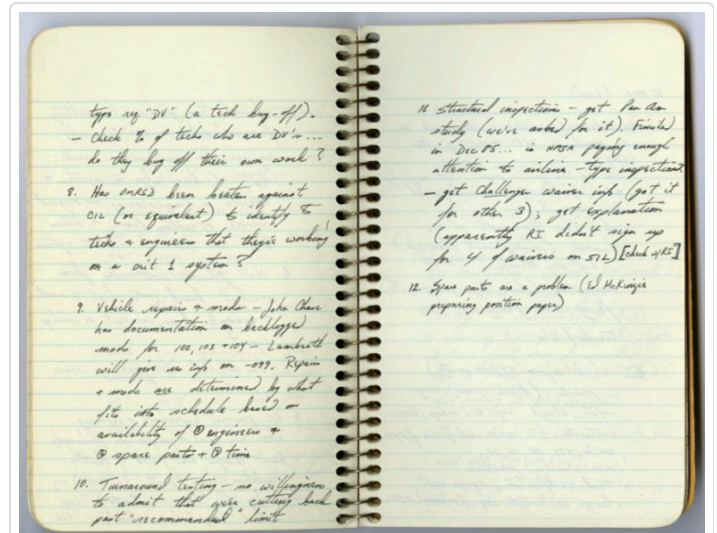 type rep. "DV" (a tech buy-off).
– Check % of techs who are DV's ...
do they buy off their own work?
8. Has OMRSD been beaten against
CIL (or equivalent) to identify to
techs & engineers that they're working
on a crit 1 system?
9. Vehicle repairs & mods – John Chase
has documentation on backlogged
mods for 102, 103 + 104 – Lambreth
will give us info on -099. Repairs
& mods are determined by what
fits into schedule based on
availability of ① engineers &
② spare parts + ③ time
10. Turnaround testing – no willingness
to admit that we're cutting back
past "recommended" limit
11. Structural inspections – get Pan Am
study (we've asked for it). Finished
in Dec 85... is NASA paying enough
attention to airline-type inspections.
– get Challenger waiver info (got it
for other 3); get explanation
(apparently RI didn't sign up
for 4 of waivers on 51L) [check w/RI]
12. Spare parts are a problem (Ed McKenzie
preparing position paper)